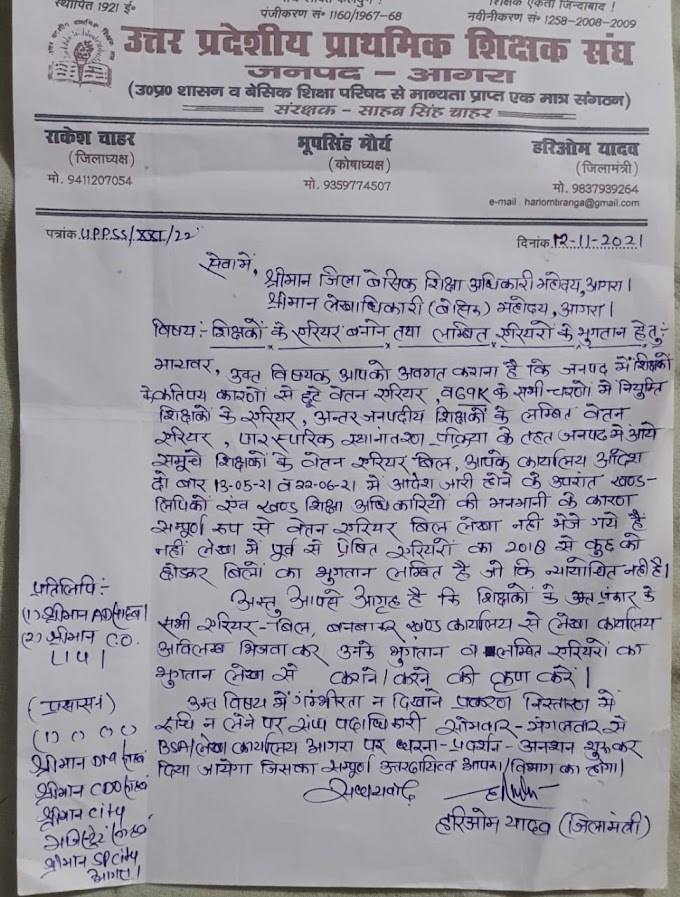 स्थापित 1921 ई०
शिक्षक एकता जिन्दाबाद !
पंजीकरण सं० 1160/1967-68
नवीनीकरण सं० 1258-2008-2009
उत्तर प्रदेशीय प्राथमिक शिक्षक संघ
जनपद - आगरा
(उ०प्र० शासन व बेसिक शिक्षा परिषद से मान्यता प्राप्त एक मात्र संगठन)
संरक्षक - साहब सिंह चाहर
राकेश चाहर
(जिलाध्यक्ष)
मो. 9411207054
भूपसिंह मौर्य
(कोषाध्यक्ष)
मो. 9359774507
हरिओम यादव
(जिलामंत्री)
मो. 9837939264
e-mail . hariombranga@gmail.com
पत्रांक U.P.P.S.S/XXI/22
दिनांक 12-11-2021
सेवा में,
श्रीमान जिला बेसिक शिक्षा अधिकारी महोदय, आगरा।
श्रीमान लेखाधिकारी (बेसिक) महोदय, आगरा।
विषय :- शिक्षकों के एरियर बनाने तथा लम्बित एरियरों के भुगतान हेतु:
मान्यवर, उक्त विषयक आपको अवगत कराना है कि जनपद में शिक्षकों
के कतिपय कारणों से छूटे वेतन एरियर, व 69K के सभी चरणों में नियुक्ति
शिक्षकों के एरियर, अन्तर जनपदीय शिक्षकों के लम्बित वेतन
एरियर, पारस्परिक स्थानांतरण प्रक्रिया के तहत जनपद में आये
समूचे शिक्षकों के वेतन एरियर बिल, आपके कार्यालय आदेश
दो बार 13-05-21 व 22-06-21 में आदेश जारी होने के उपरांत खण्ड-
लिपिकों एंव खण्ड शिक्षा अधिकारियो की मनमानी के कारण
सम्पूर्ण रूप से वेतन एरियर बिल लेखा नहीं भेजे गये हैं
नहीं लेखा में पूर्व से प्रेषित एरियरों का 2018 से कुछ को
छोडकर बिलों का भुगतान लम्बित है जो कि न्यायोचित नही है।
अस्तु आपसे आग्रह है कि शिक्षकों के उक्त प्रकार के
सभी एरियर-बिल, बनबाकर खण्ड कार्यालय से लेखा कार्यालय
अविलम्ब भिजवा कर उनके भुगतान व लम्बित एरियरों का
भुगतान लेखा से कराने/करने की कृपा करें।
उक्त विषय में गंम्भीरता न दिखाने प्रकरण निस्तारण में
रूचि न लेने पर संघ पदाधिकारी सोमवार-मंगलवार से
BSA/लेखा कार्यालय आगरा पर धरना-प्रदर्शन-अनशन शुरू कर
दिया जायेगा जिसका सम्पूर्ण उत्तरदायित्व आपका/विभाग का होगा।
सधन्यवाद
हरिओम यादव (जिलामंत्री)
प्रतिलिपि :-
(1) श्रीमान AD
(2) श्रीमान CO.
LIU।
(प्रशासन)
श्रीमान DM
श्रीमान CDO
श्रीमान City
मजिस्ट्रेट
श्रीमान SP City
आगरा।